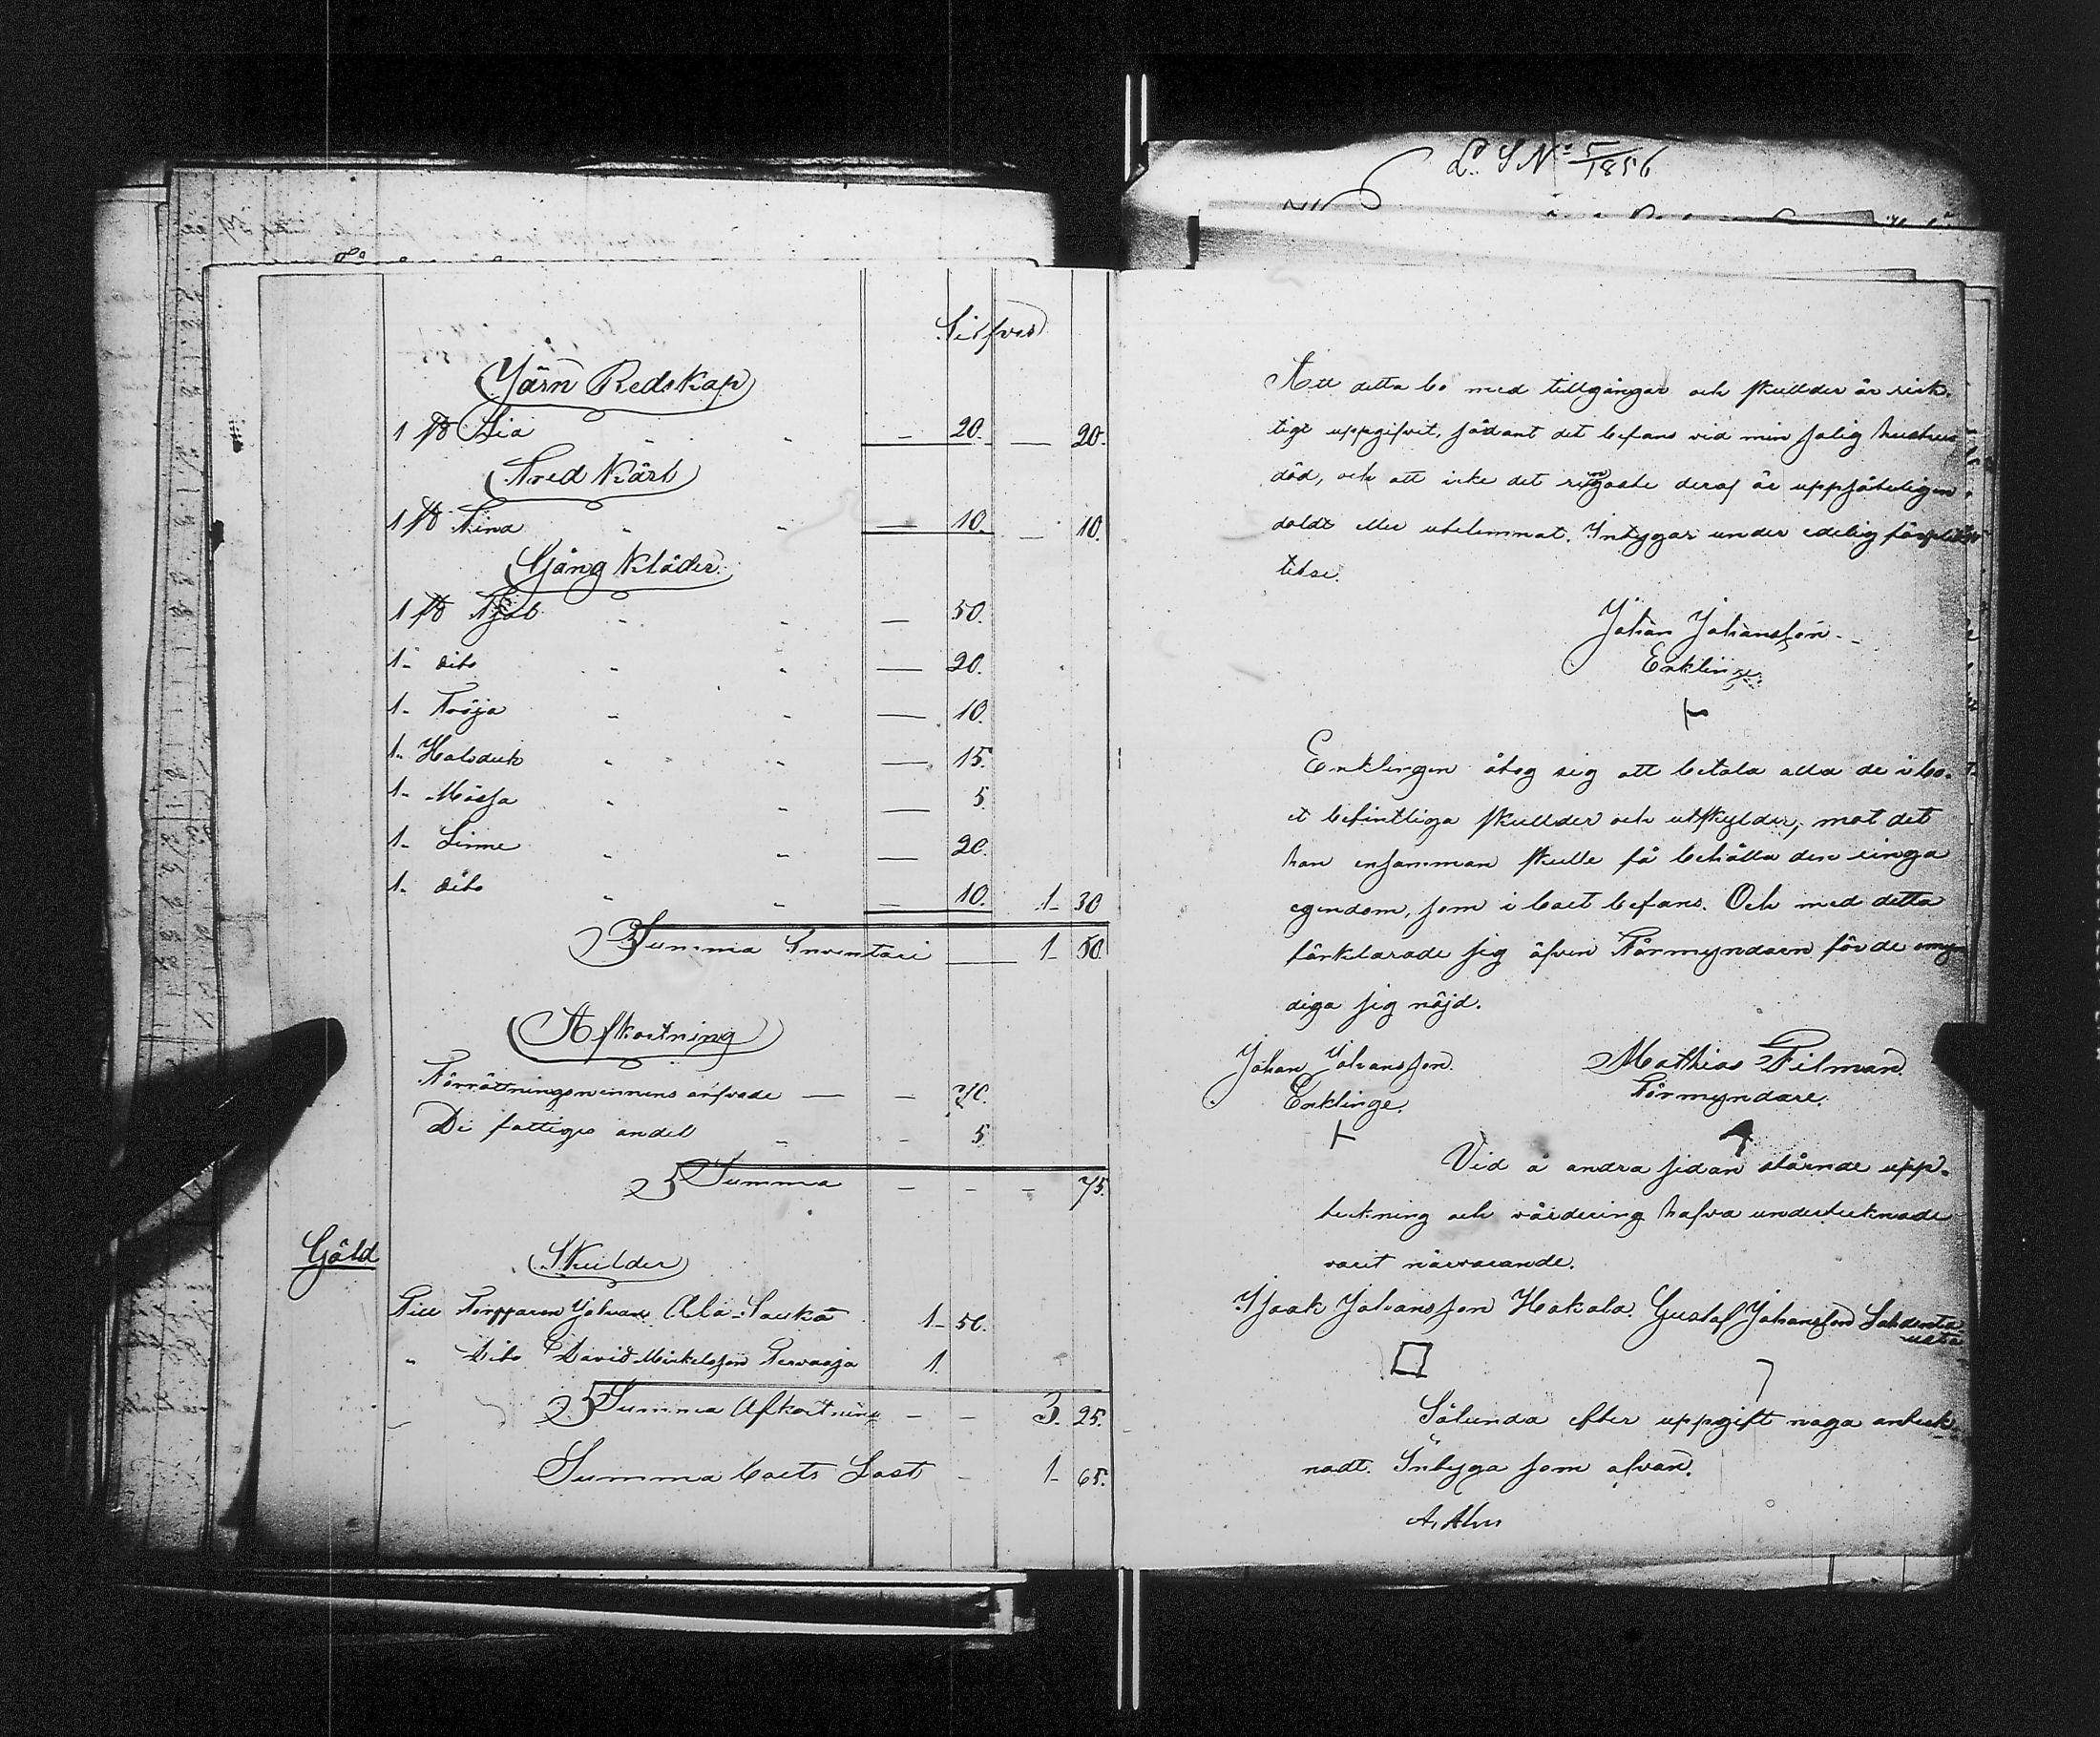 Silfver
Järn Redskap
1 st Lia - - — 20. — 20.
Träd Kärl
1 st Tina - - — 10. — 10.
Gång Kläder.
1 st Kjol - - — 50.
1- dito - - — 20.
1- Tröja - - — 10.
1- Halsduk - - — 15.
1- Mössa - - — 5.
1- Linne - - — 20.
1- dito - - — 10. 1- 30
Summa Inventari — 1- 50.
Afkortning
Förrättningsmennens arfvode — — 70.
De fattigas andel - - 5.
Summa - - - 75.
Gäld
Skulder
Till Torpparen Johan Ala-Saukä 1- 50.
" Dito David Mickelsson Tervaoja 1.
Summa Afkortning - - 3. 25.
Summa boets Last - 1- 65.
L. S N:o 5/1856
Att detta bo med tillgångar och skullder är rick-
tigt uppgifvit, sådant det befans vid min salig hustrus
död, och att icke det ringaste deraf är uppsåteligen
doldt eller utelemnat. Intygar under edelig förplik-
telse.
Johan Johansson.
Enklinge.
Enklingen åtog sig att betala alla de i bo-
et befintliga skullder och utskylder, mot det
han ensamman skulle få behålla den ringa
egendom, som i boet befans. Och med detta
förklarade sig äfven Förmyndaren för de omyn
diga sig nöjd.
Johan Johansson. Mathias Filman
Enklinge. Förmyndare.
Vid å andra sidan stående upp-
teckning och värdering hafva undertecknade
varit närvarande.
Isaak Johansson Hakala. Gustaf Johansson
Sålunda efter uppgift noga anteck-
nadt. Intyga som ofvan.
A. Alm